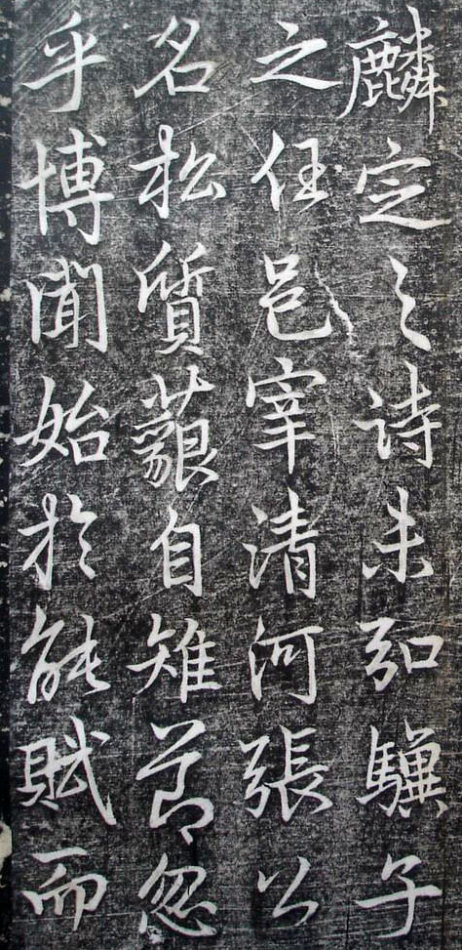 麟定之詩未弘驥子
之任邑宰清河張公
名松質藐自雉節忽
乎博聞始於能賦而